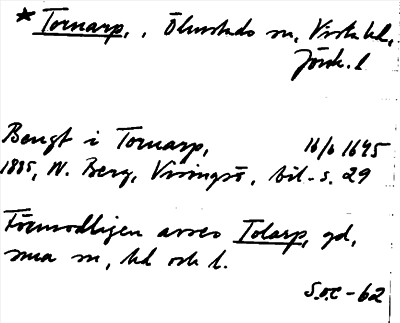 * Tornarp, . Ölmstads sn, Vista hd,
Jönk. l
Bengt i Tornarp, 16/6 1645
1885, N. Berg, Visingsö, bil-s. 29
Förmodligen avses Tolarp, gd,
sma sn, hd och l.
S.O.C-62